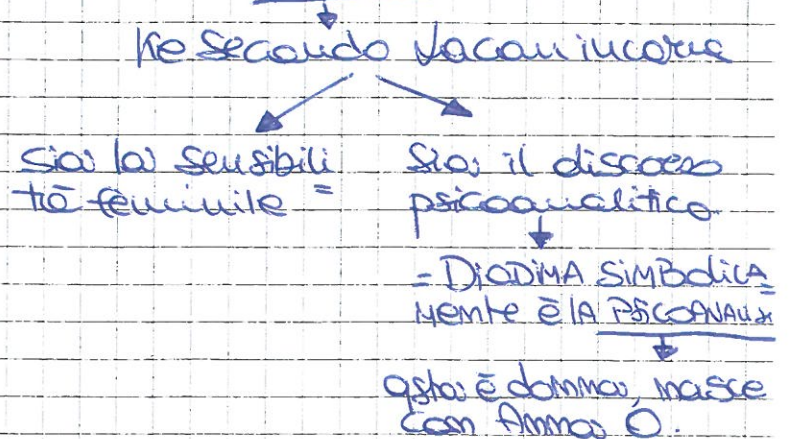 ke secondo Lacan incarna
sia la sensibili
tà feminile =
sia il discorso
psicoanalitico
= DIODIMA SIMBOLICA =
MENTE È lA PSICOANALISI
qsta è donna, nasce
con Anna O.